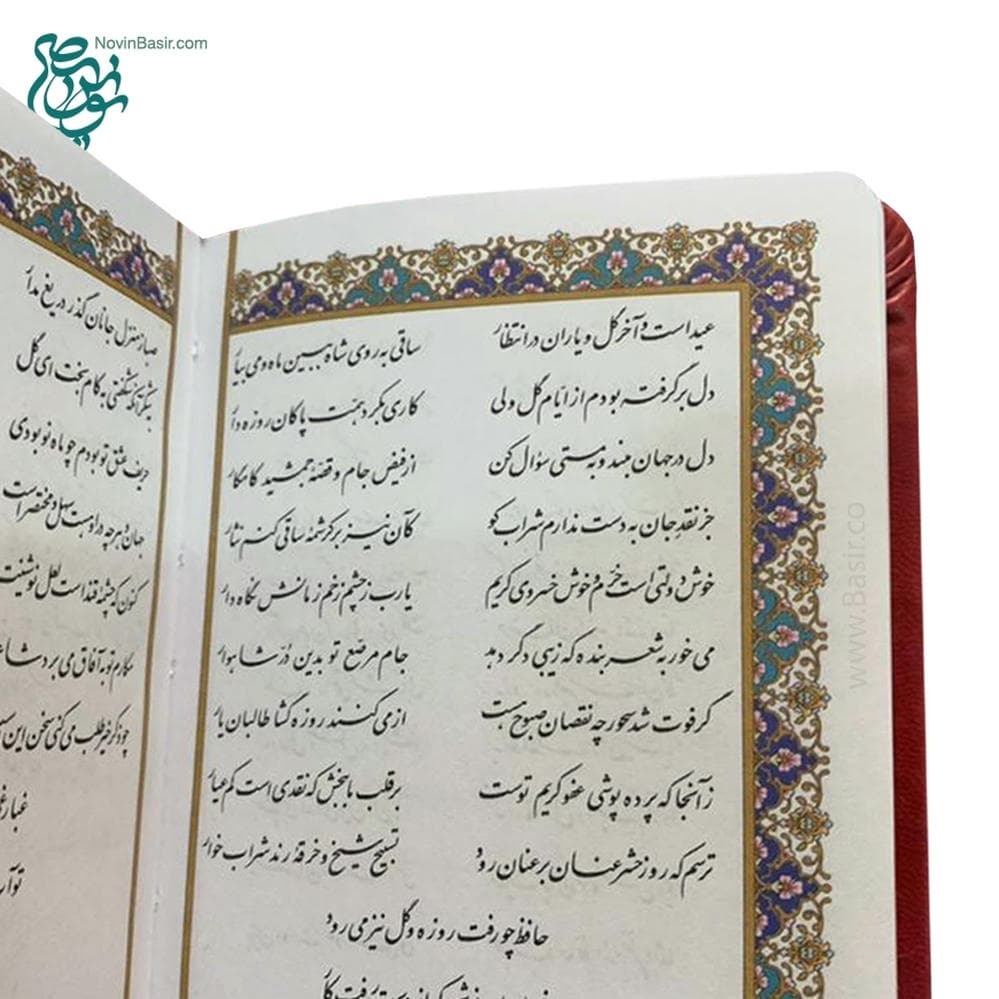 NovinBasir.com
عید است و آخر گل و یاران در انتظار
ساقی به روی شاه ببین ماه و می بیار
دل برگرفته بودم از ایّام گل ولی
کاری بکرد همّت پاکان روزه دار
دل در جهان مبند و به مستی سؤال کن
از فیض جام و قصّهٔ جمشید کامگار
جز نقد جان به دست ندارم شراب کو
کآن نیز بر کرشمهٔ ساقی کنم نثار
خوش دولتی است خرّم و خوش خسروی کریم
یارب ز چشم زخم زمانش نگاه دار
می خور به شعر بنده که زیبی دگر دهد
جام مرصّع تو بدین درّ شاهوار
گر فوت شد سحور چه نقصان صبوح هست
از می کنند روزه گشا طالبان یار
زآنجا که پرده پوشی عفو کریم توست
بر قلب ما ببخش که نقدی است کم عیار
ترسم که روز حشر عنان بر عنان رود
تسبیح شیخ و خرقهٔ رند شراب خوار
حافظ چو رفت روزه و گل نیز می رود
صبا ز منزل جانان گذر دریغ مدار
به شکر آنکه شگفتی به کام بخت ای گل
حریف عشق تو بودم چو ماه نو بودی
جهان و هرچه در او هست سهل و مختصر است
کنون که چشمهٔ قند است لعل نوشینت
مکارم تو به آفاق می برد شاعر
چو ذکر خیر طلب می کنی سخن این
غبار
www.Basir.co